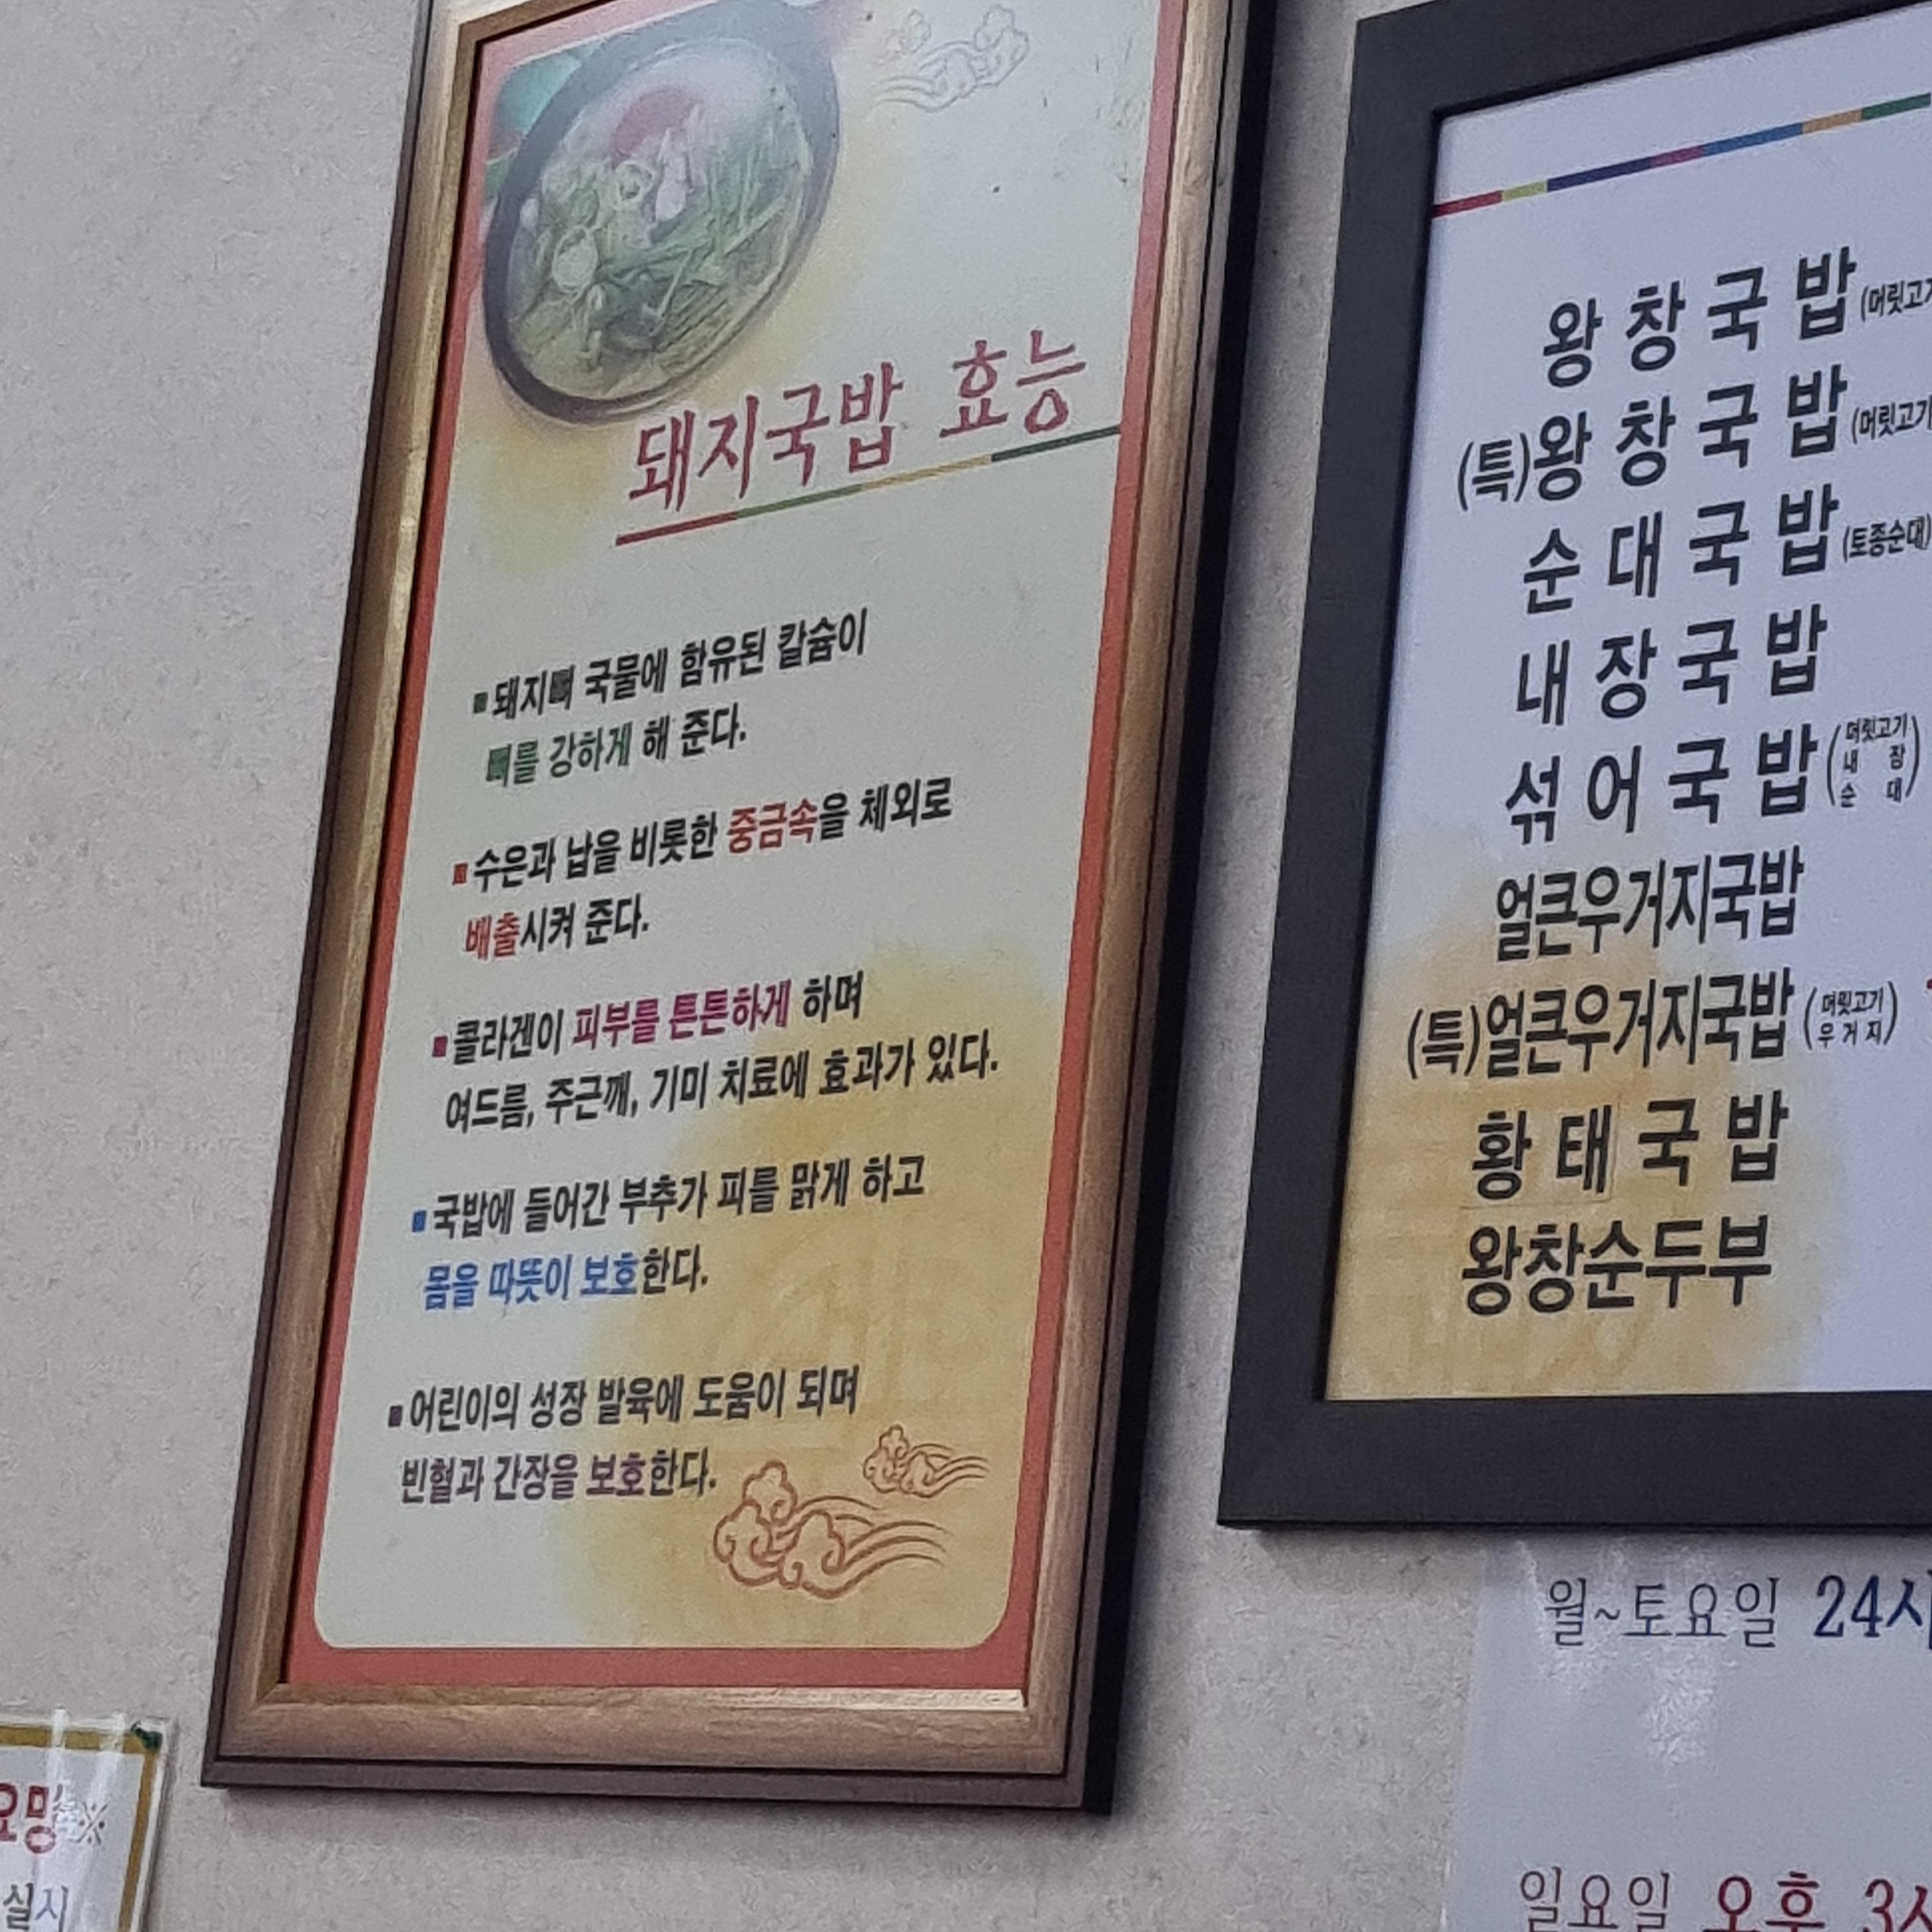 돼지국밥 효능
돼지뼈 국물에 함유된 칼슘이
뼈를 강하게 해 준다.
수은과 납을 비롯한 중금속을 체외로
배출시켜 준다.
콜라겐이 피부를 튼튼하게 하며
여드름, 주근깨, 기미 치료에 효과가 있다.
국밥에 들어간 부추가 피를 맑게 하고
몸을 따뜻이 보호한다.
어린이의 성장 발육에 도움이 되며
빈혈과 간장을 보호한다.
왕창국밥 (머릿고기
(특)왕창국밥 (머릿고기
순대국밥 (토종순대)
내장국밥
섞어국밥 (머릿고기 내장 순대)
얼큰우거지국밥
(특)얼큰우거지국밥 (머릿고기 우거지)
황태국밥
왕창순두부
월~토요일 24시
일요일 오후 3시
요망※
실시